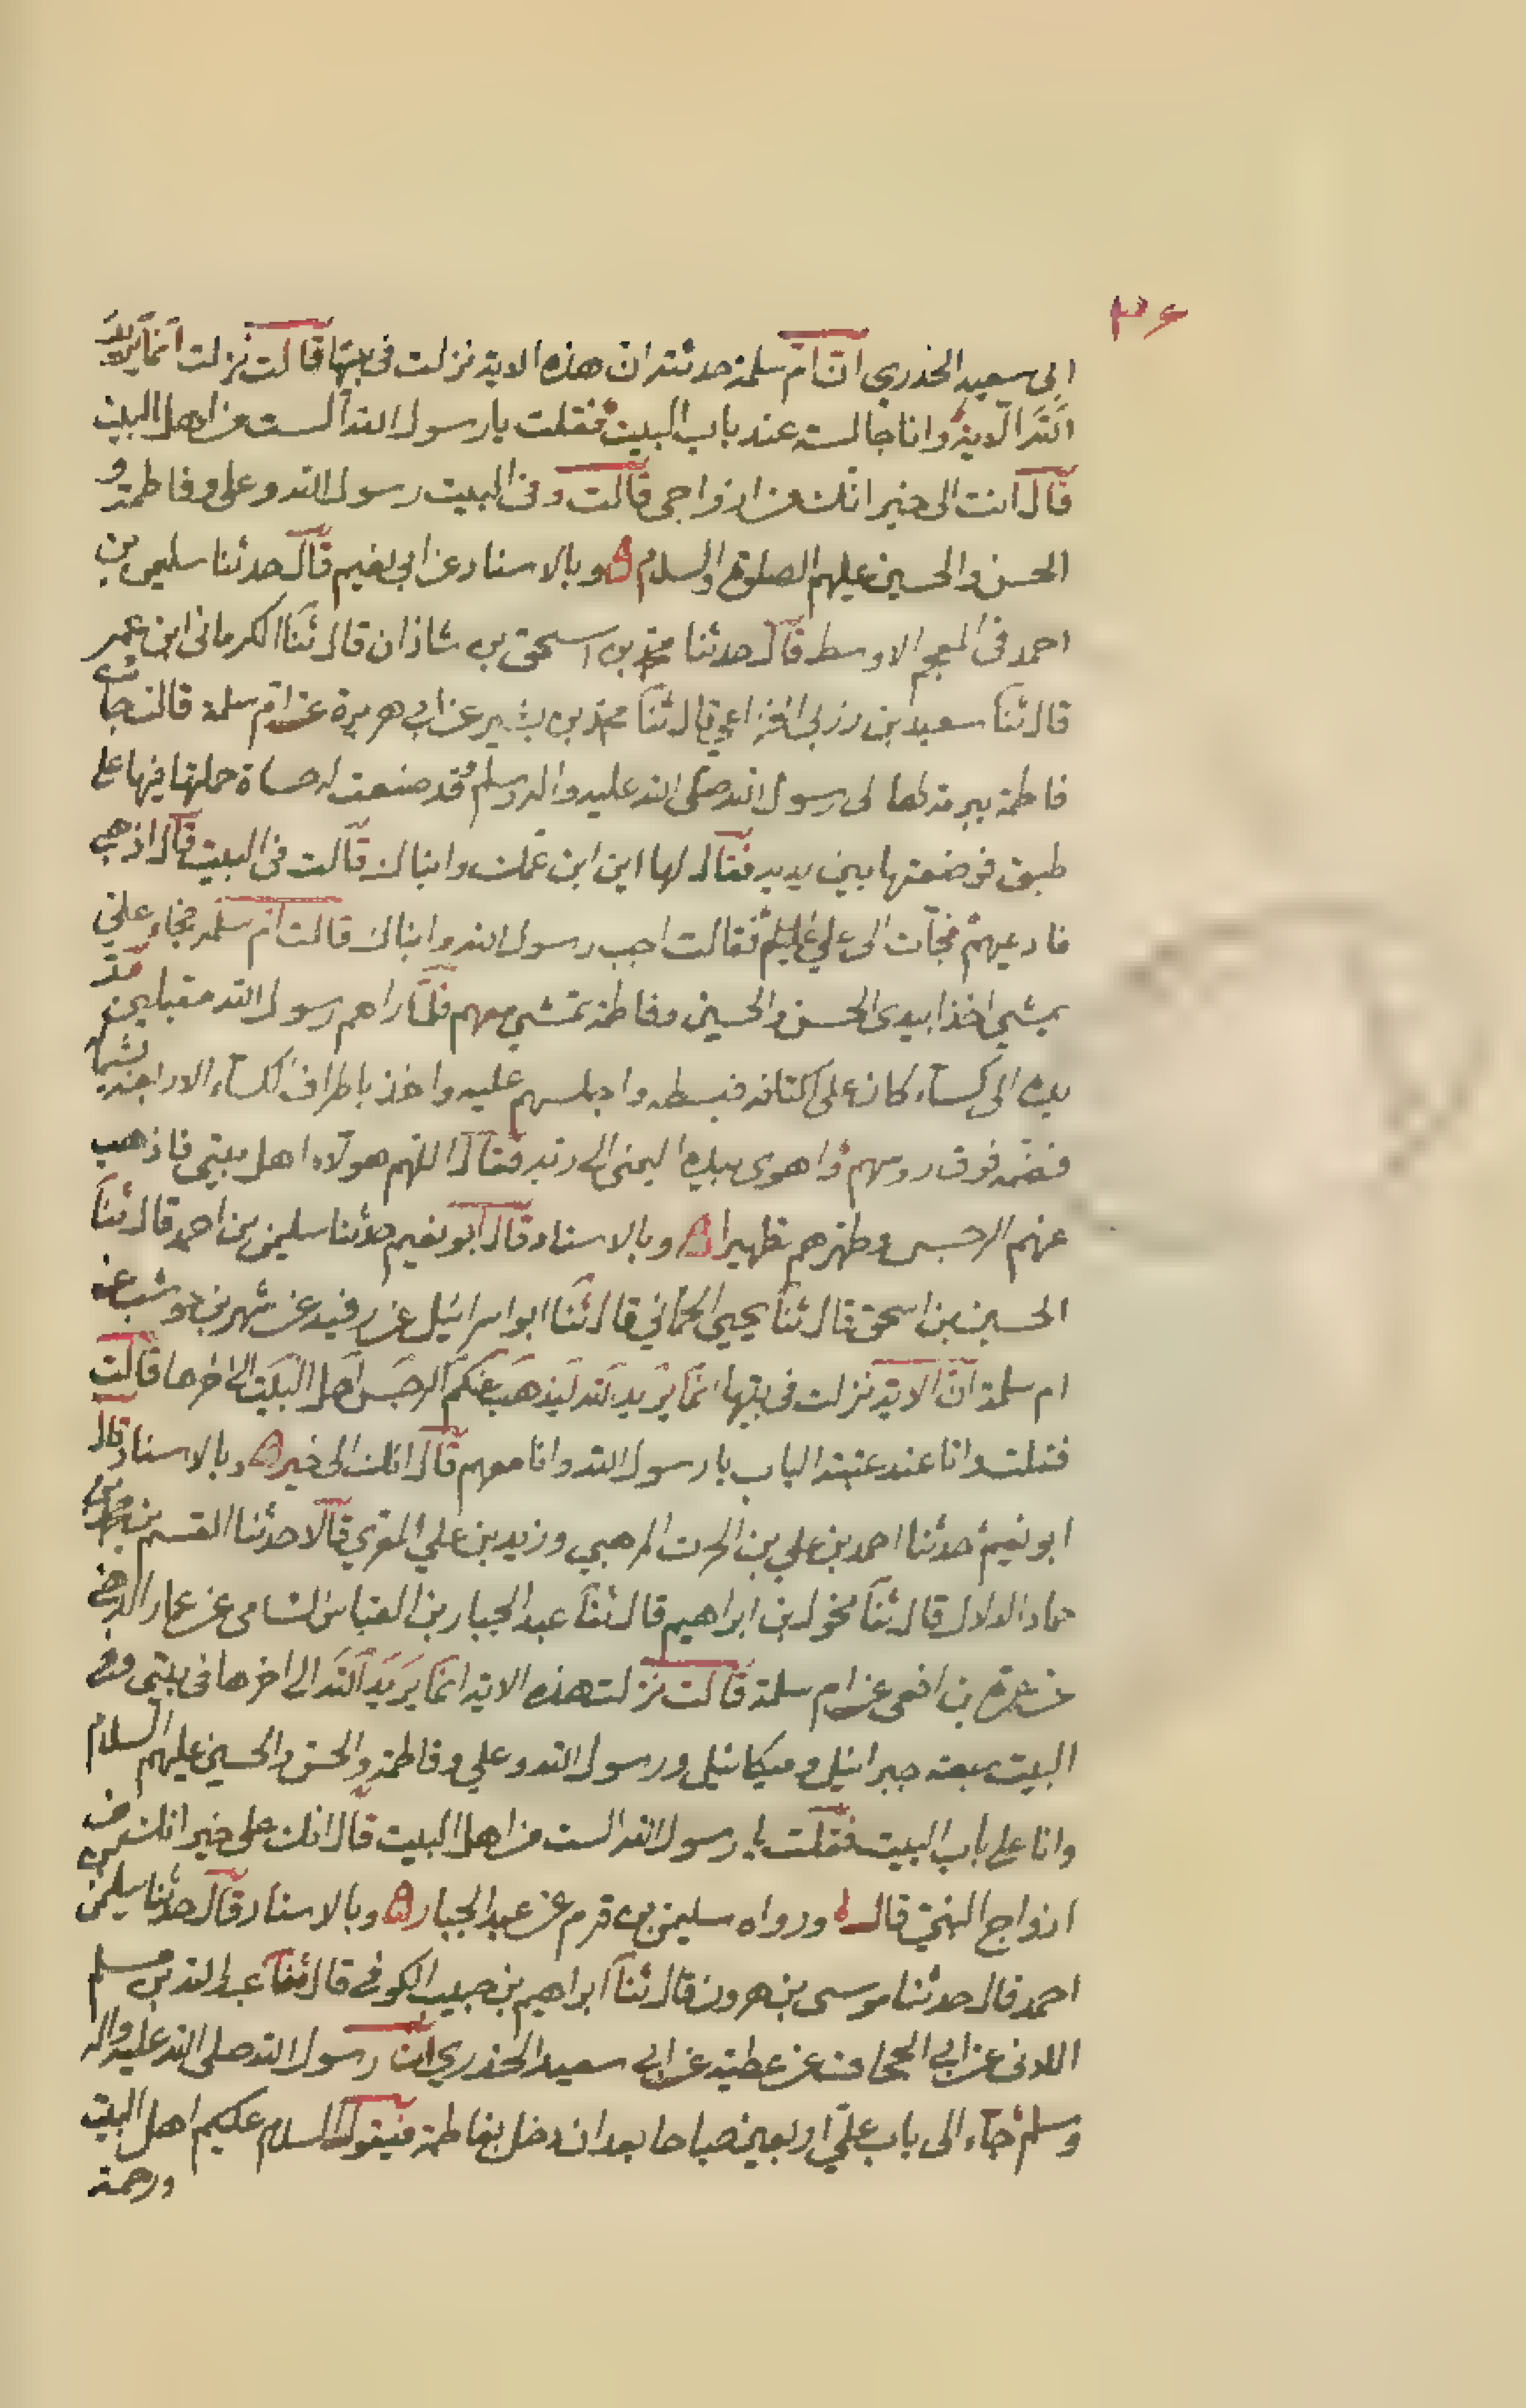 ۳۶
ابى سعيد الخدري ان ام سلمة حدثته ان هذه الاية نزلت فى بيتها قالت نزلت انما يريد
الله الاية وانا جالسة عند باب البيت فقلت يا رسول الله الست من اهل البيت
قال انت الى خير انك من ازواجى قالت وفى البيت رسول الله وعلى وفاطمة و
الحسن والحسين عليهم الصلوة والسلام وبالاسناد عن ابى نعيم قال حدثنا سليمن بن
احمد فى المعجم الاوسط قال حدثنا محمد بن اسحق بن شاذان قال ثنا الكرمانى ابن عمر
قال ثنا سعيد بن زربى الخزاعي قال ثنا محمد بن بشير عن ابى هريرة عن ام سلمة قالت جائت
فاطمة ببرمة لها لى رسول الله صلى الله عليه واله وسلم قد صنعت له حساة حملتها فيها على
طبق فوضعتها بين يديه فقال لها اين ابن عمك وابناك قالت فى البيت قال اذهبى
فادعيهم فجآت الى علي فقالت اجب رسول الله وابناك قالت ام سلمة فجاء علي
يمشي اخذا بيدى الحسن والحسين وفاطمة تمشي معهم فلما راهم رسول الله مقبلين مد
يده الى كسآء كان على اكتافه فبسطه واجلسهم عليه واخذ باطراف الكسآء الاربعة بشماله
فضمه فوق روسهم واهوى بيده اليمنى الى ربه فقال اللهم هولآء اهل بيتى فاذهب
عنهم الرجس وطهرهم تطهيرا وبالاسناد قال ابو نعيم حدثنا سليمن بن احمد قال ثنا
الحسين بن اسحق قال ثنا يحيى الحماني قال ثنا ابو اسرائيل عن رفيد عن شهر بن حوشب عن
ام سلمة ان الاية نزلت فى بيتها انما يريد الله ليذهب عنكم الرجس اهل البيت الى اخرها قالت
فقلت وانا عند عتبة الباب يا رسول الله وانا معهم قال انك الى خير وبالاسناد قال
ابو نعيم حدثنا احمد بن علي بن الحرث المرهبي وزيد بن علي المقري قالا حدثنا القسم بن محمد بن
حماد الدلال قال ثنا مخول بن ابراهيم قال ثنا عبد الجبار بن العباس الشامى عن عمار الدهنى
عن عمرة بن افعى عن ام سلمة قالت نزلت هذه الاية انما يريد الله الى اخرها فى بيتى وفى
البيت سبعة جبرائيل وميكائيل ورسول الله وعلي وفاطمة والحسن والحسين عليهم السلام
وانا على باب البيت فقلت يا رسول الله الست من اهل البيت قال انك على خير انك من
ازواج النبي قال ورواه سليمن بن قرم عن عبد الجبار وبالاسناد قال حدثنا سليمن بن
احمد قال حدثنا موسى بن هرون قال ثنا ابراهيم بن حبيب الكوفى قال ثنا عبد الله بن مسلم
اللادنى عن ابى الجحاف عن عطية عن ابى سعيد الخدري ان رسول الله صلى الله عليه واله
وسلم جآء الى باب علي اربعين صباحا بعد ان دخل بفاطمة فيقول السلام عليكم اهل البيت
ورحمة